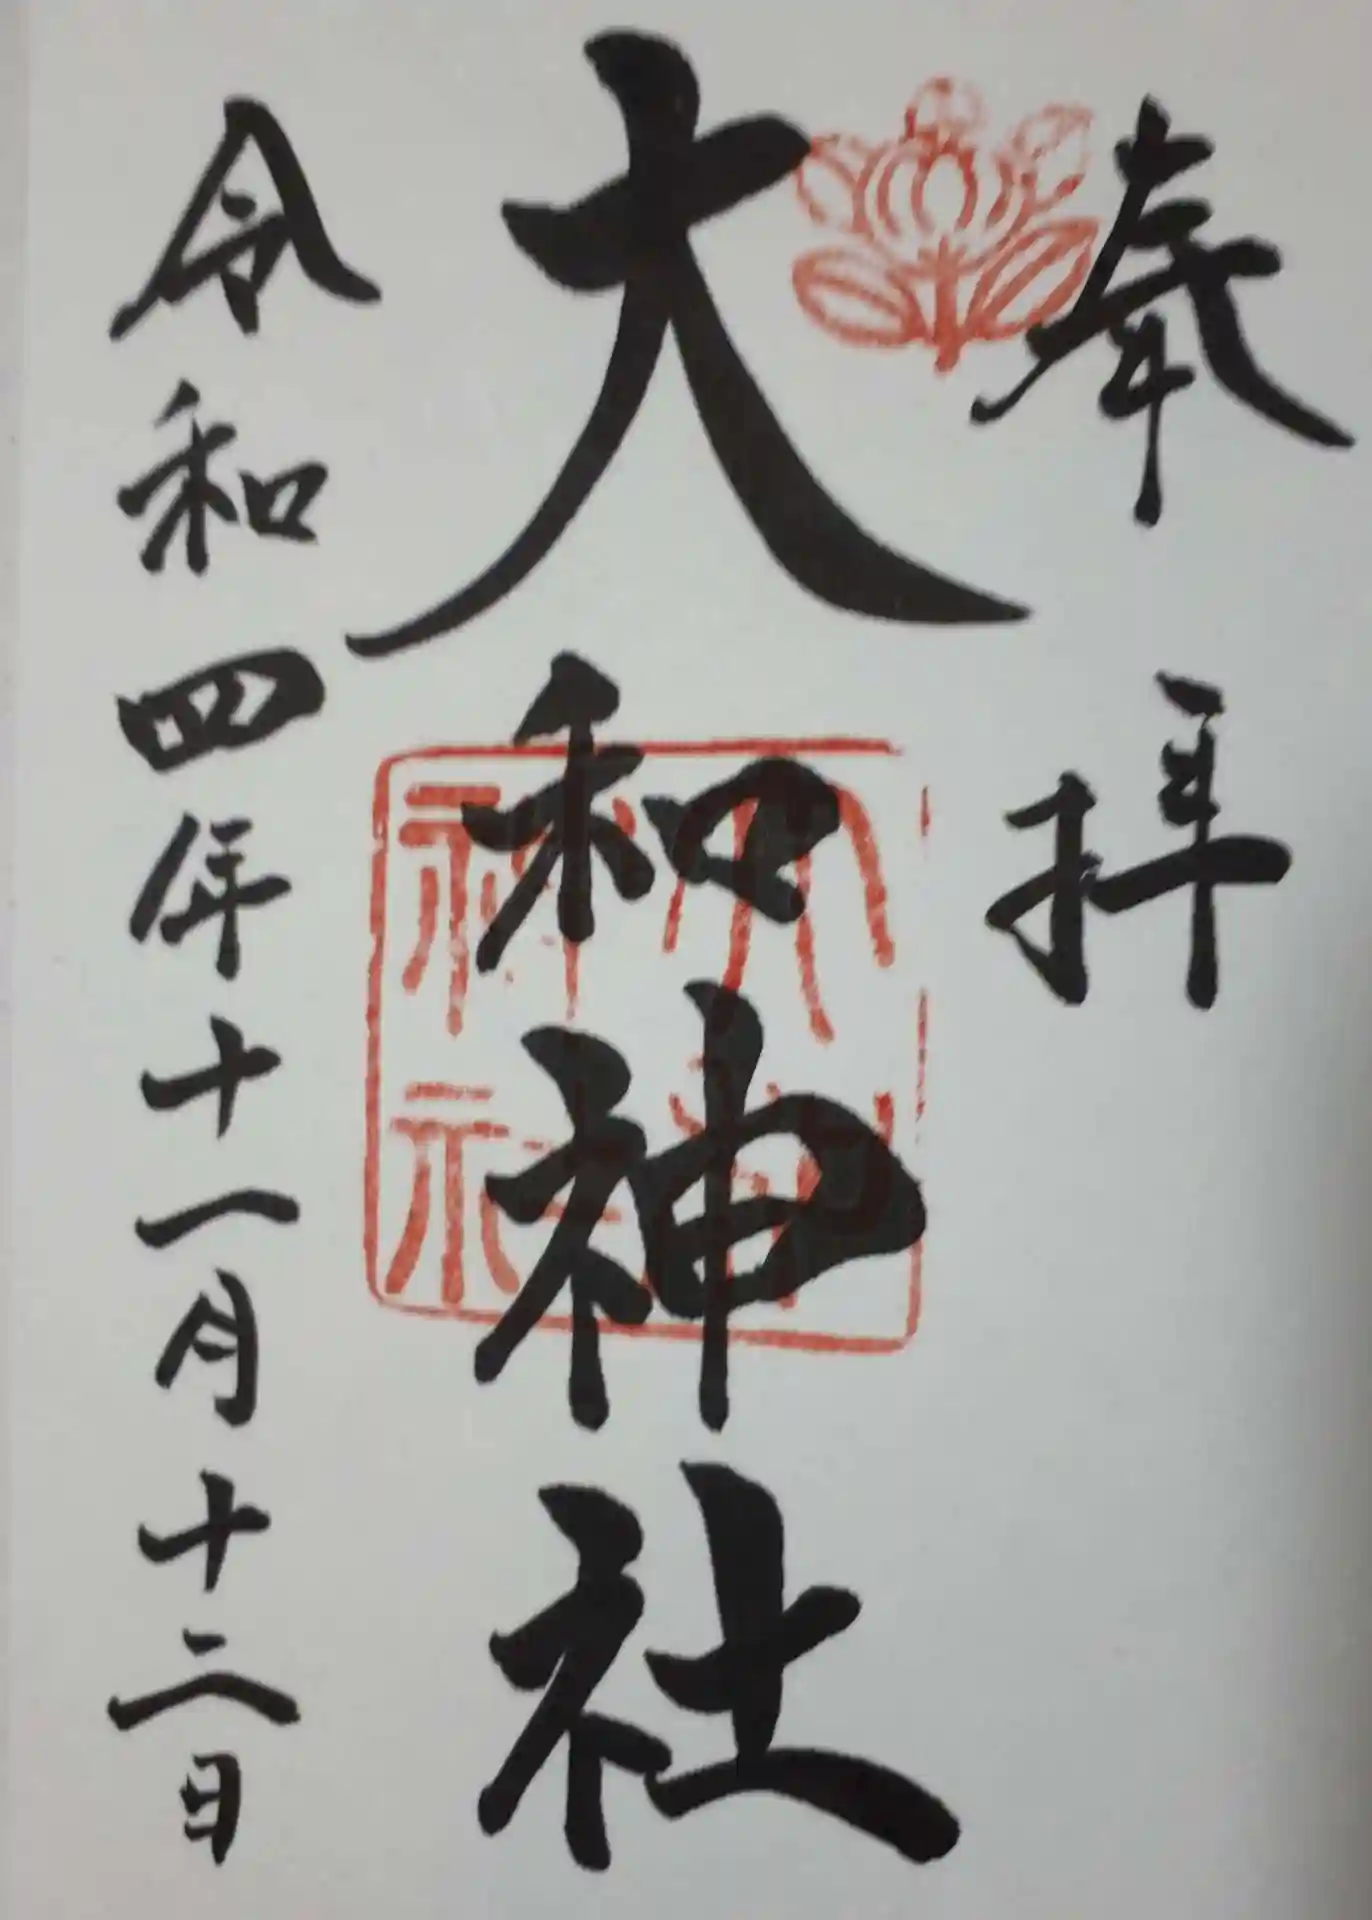 奉拝
大和神社
大和神社
令和四年十一月十二日